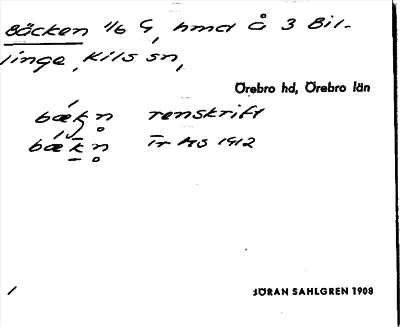 Bäcken 1/6 G, hmd Å 3 Bil-
linge, Kils sn,
Örebro hd, Örebro län
bækn renskrift
bækn Tr MS 1912
1 JÖRAN SAHLGREN 1908